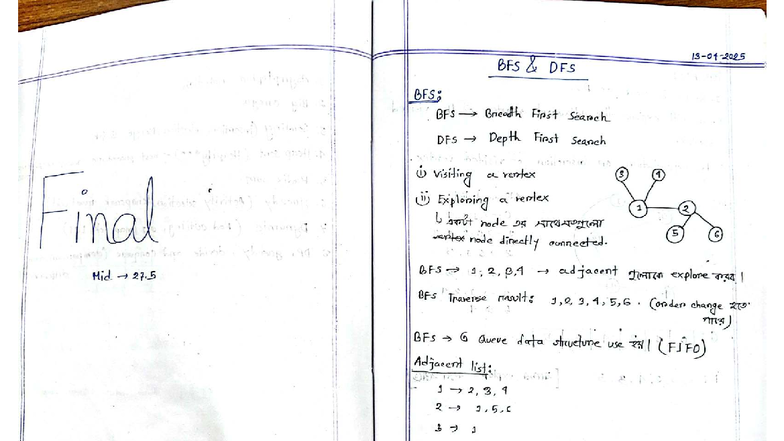 Final
Mid → 27.5
13-01-2025
BFS & DFS
BFS:
BFS → Breadth First Search
DFS → Depth First Search
(i) Visiting a vertex
(ii) Exploring a vertex
↳ একটা node এর সাথে যতগুলো
node directly connected.
3 4
1 2
5 6
BFS → 1, 2, 3, 4 → adjacent গুলোকে explore করব।
BFS Traverse result: 1, 2, 3, 4, 5, 6. (order change হতে
পারে)
BFS → Queue data structure use হয়। (FIFO)
Adjacent list:
1 → 2, 3, 4
2 → 1, 5, 6
3 → 1